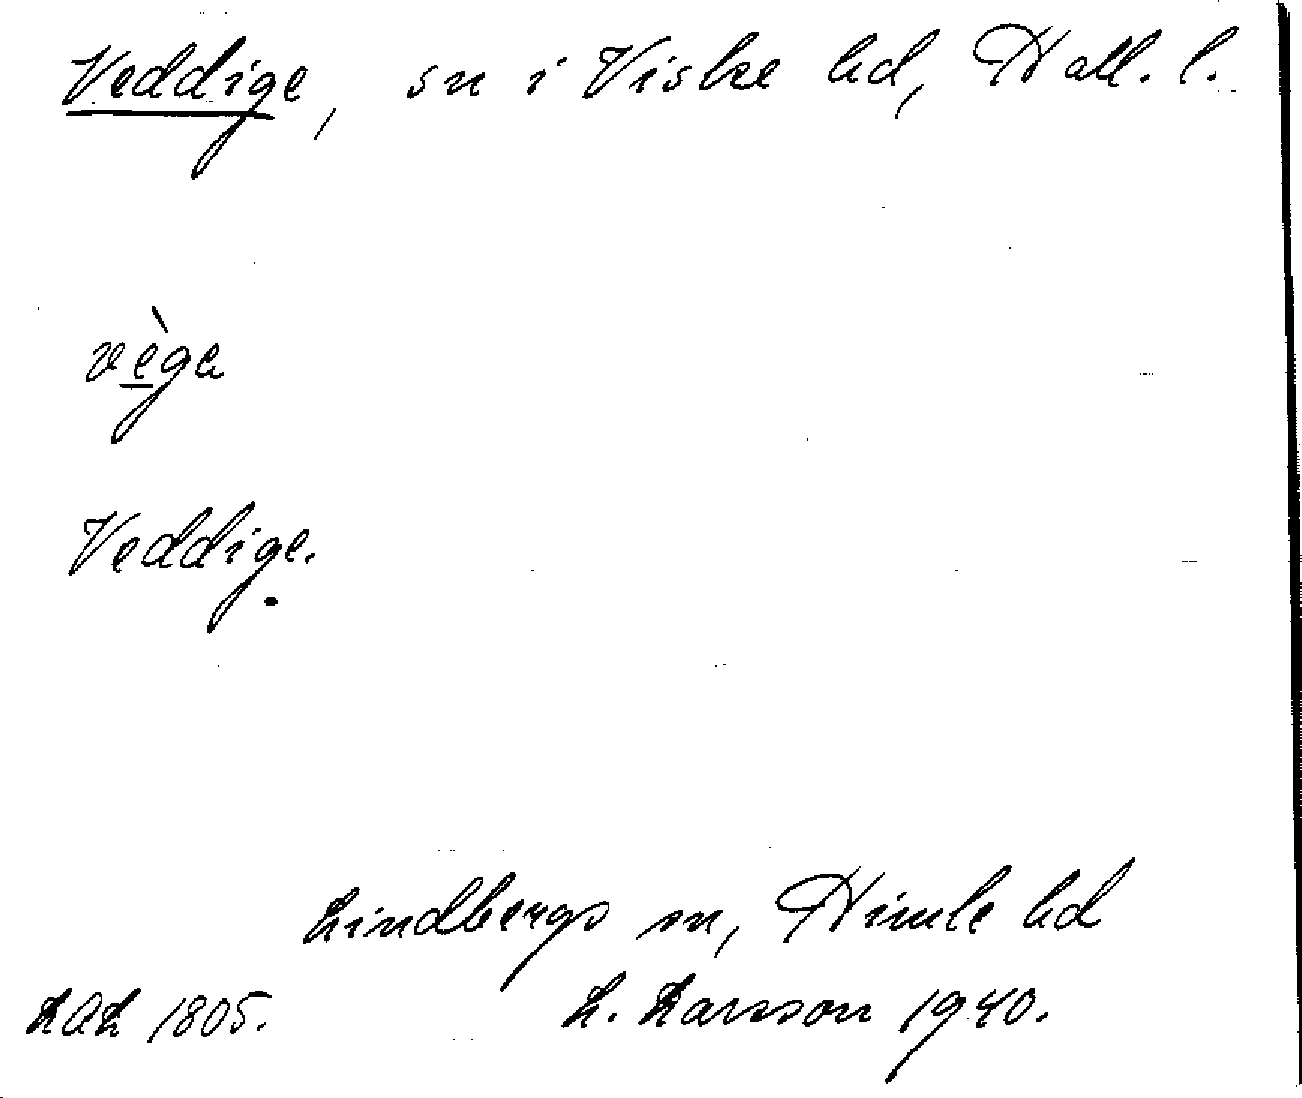 Veddige, sn i Viske hd, Hall. l.
vège
Veddige.
Lindbergs sn, Himle hd
LAL 1805. L. Larsson 1940.